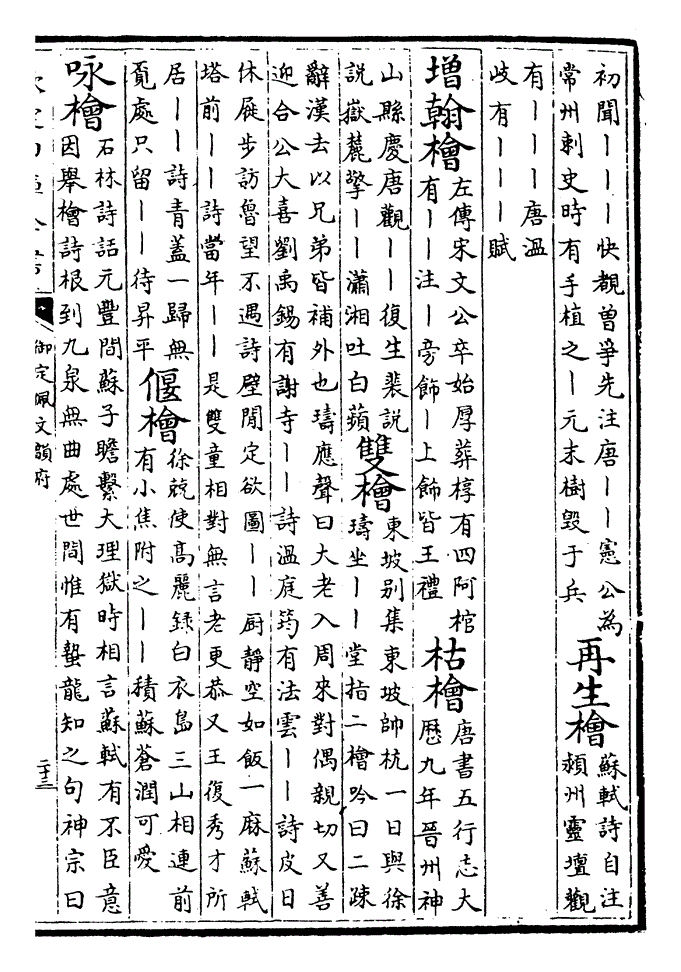 初聞丨丨丨快覩曽爭先注唐丨丨憲公為
常州刺史時有手植之丨元末樹毀于兵
再生檜
蘇軾詩自注
潁州靈壇觀
有丨丨丨唐溫
歧有丨丨丨賦
增翰檜
左傳宋文公卒始厚葬椁有四阿棺
有丨丨注丨旁飾丨上飾皆王禮
枯檜
唐書五行志大
厯九年晉州神
山縣慶唐觀丨丨復生裴説
説嶽麓擎丨丨瀟湘吐白蘋
雙檜
東坡别集東坡帥杭一日與徐
璹坐丨丨堂指二檜吟曰二疎
辭漢去以兄弟皆補外也璹應聲曰大老入周來對偶親切又善
迎合公大喜劉禹錫有謝寺丨丨詩溫庭筠有法雲丨丨詩皮日
休屣步訪魯望不遇詩壁閒定欲圖丨丨厨靜空如飯一麻蘇軾
塔前丨丨詩當年丨丨是雙童相對無言老更恭又王復秀才所
居丨丨詩青蓋一歸無
覔處只留丨丨待昇平
偃檜
徐兢使髙麗録白衣島三山相連前
有小焦附之丨丨積蘇蒼潤可愛
咏檜
石林詩話元豐間蘇子瞻繫大理獄時相言蘇軾有不臣意
因舉檜詩根到九泉無曲處世間惟有蟄龍知之句神宗曰
御定佩文韻府
二十三